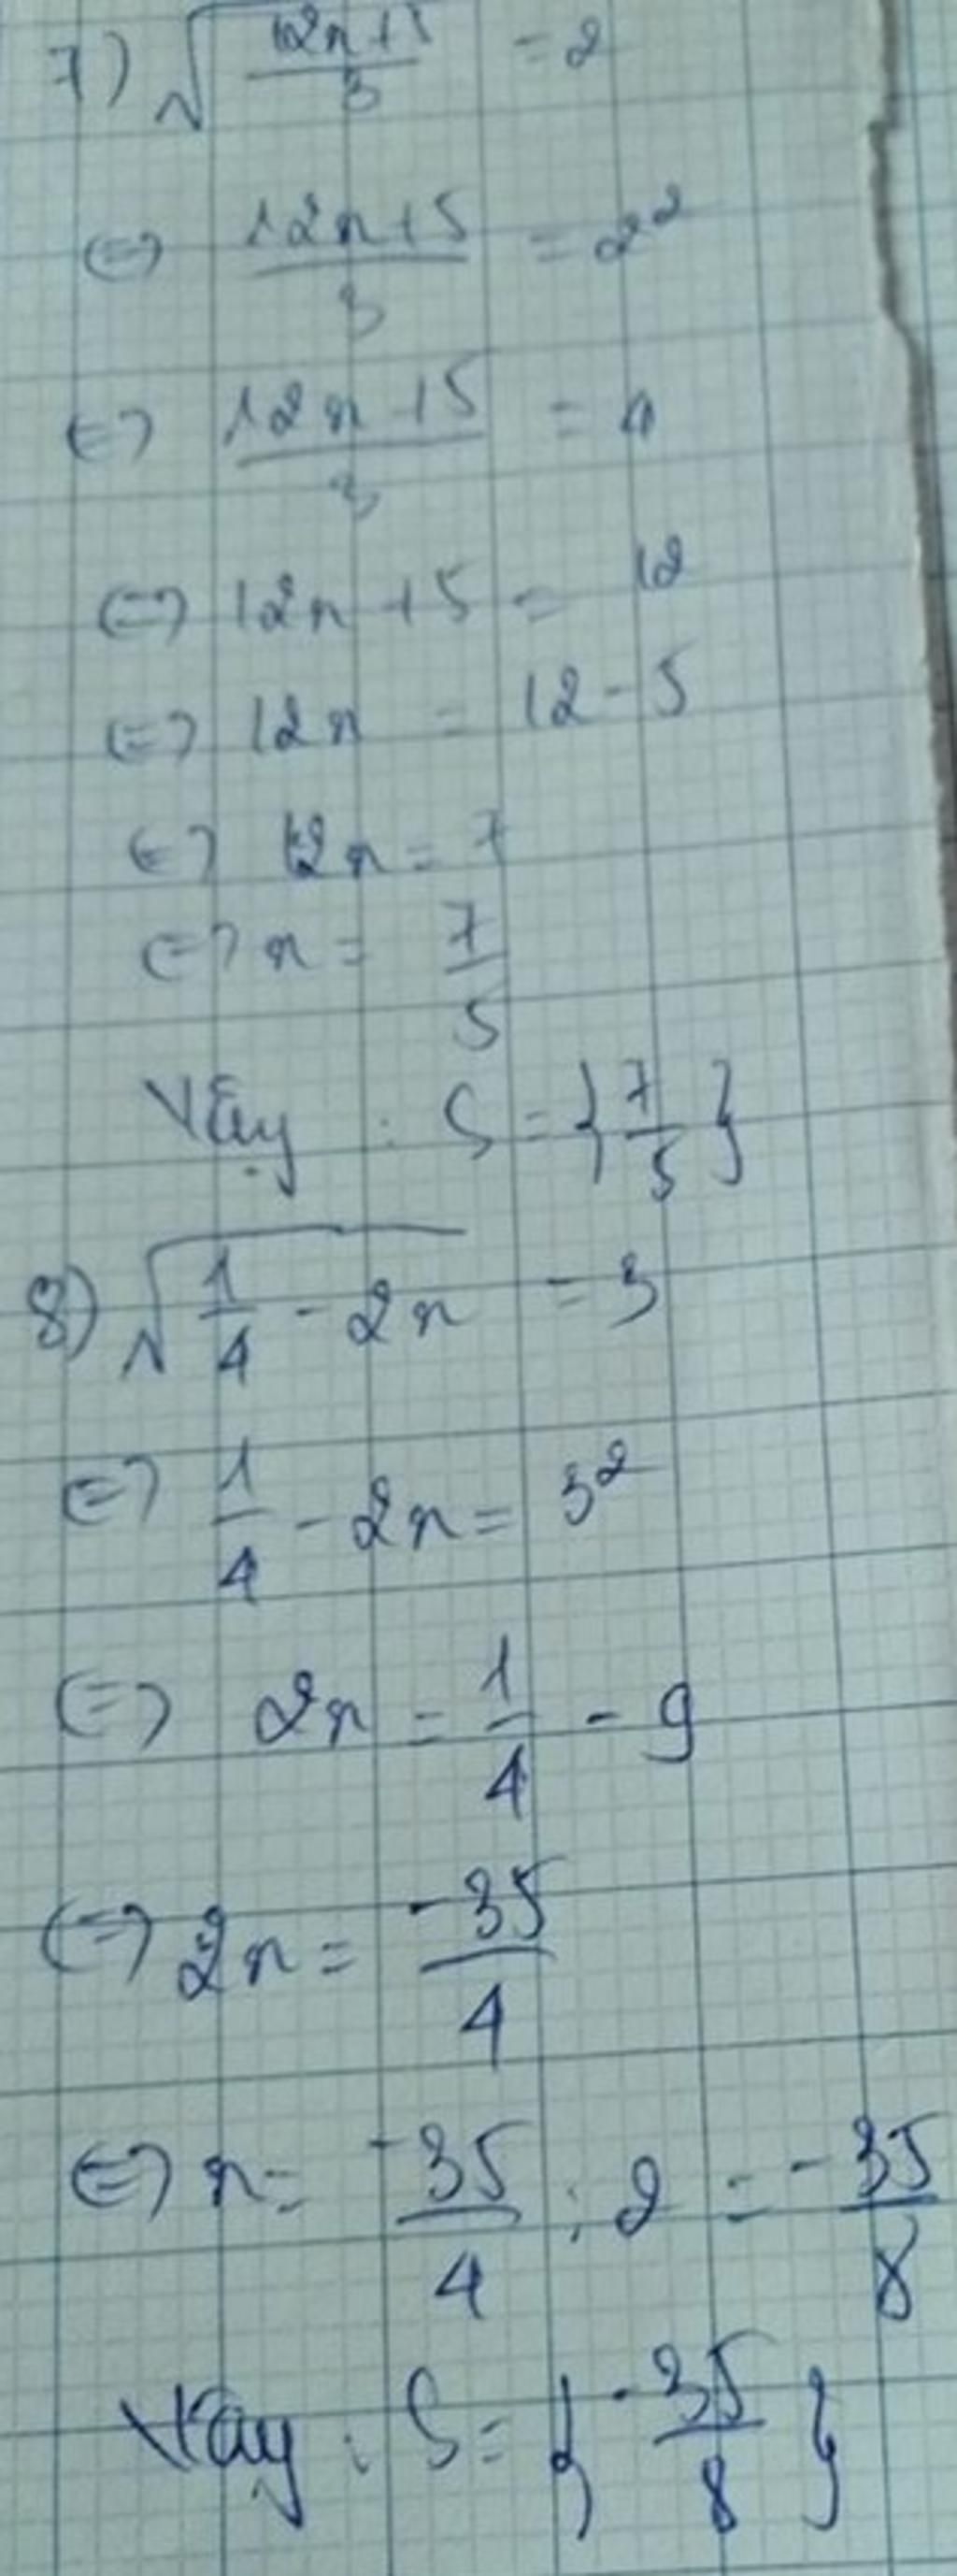 7) √((12x+5)/3) = 2
⇔ (12x+5)/3 = 2²
⇔ (12x+5)/3 = 4
⇔ 12x + 5 = 12
⇔ 12x = 12 - 5
⇔ 12x = 7
⇔ x = 7/5
Vậy : S = {7/5}
8) √(1/4 - 2x) = 3
⇔ 1/4 - 2x = 3²
⇔ 2x = 1/4 - 9
⇔ 2x = -35/4
⇔ x = -35/4 : 2 = -35/8
Vậy : S = {-35/8}